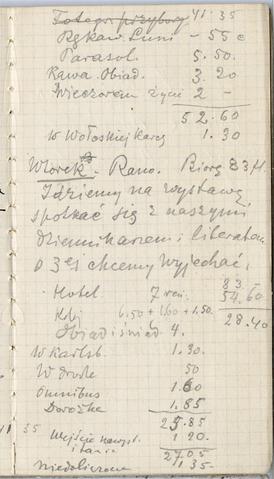 Fotogr. przybory 41.35
Rękaw Luni - 55 c
Parasol. 5.50.
Kawa Obiad. 3.20
Wieczorem 2 -
52.60
W Wołoskiej 1.30
Wtorek. Rano. Biorę 83 fl.
Idziemy na wystawę
spotkać się z naszymi
dziennikarzami, literatami
o 3ej chcemy wyjechać.
83.-
Hotel 7 54.60
6.50 + 1.60 + 1.50. 28.40
Obiad i śniad 4.
W Karlsb. 1.30.
W drodze 50
Omnibus 1.60
Dorożka 1.85
25.85
11 35 Wejście na wyst. 1 20.
27 05
Niedoliczone 1 35-